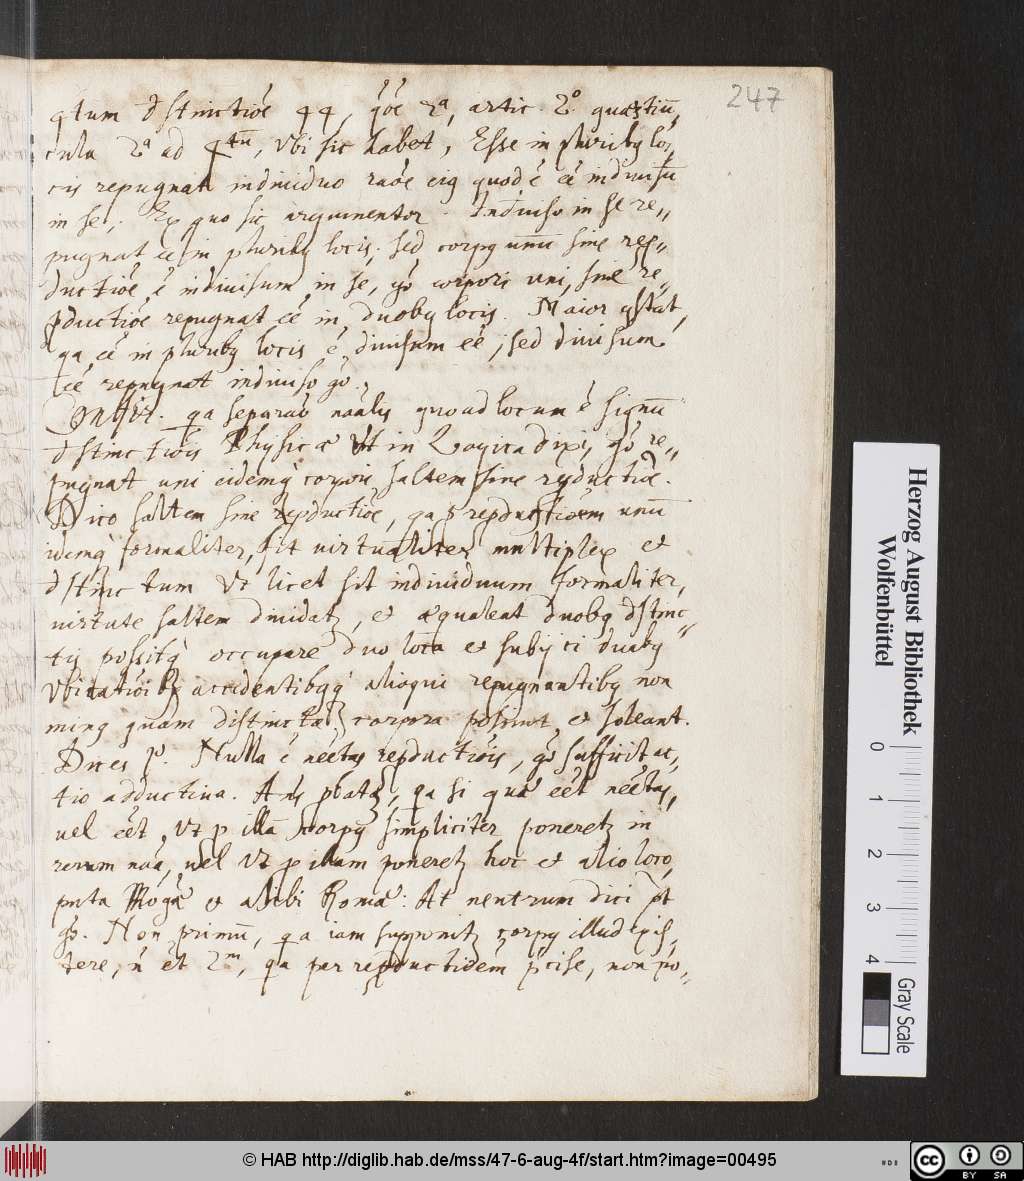 247
qtum dstinctiōe 44, qōe 2ª, artic. 2º quæstiū,,
cula 2ª ad 4tū, Vbi sic habet, Esse in pluribq lo,,
cis repugnat indiuiduo raōe eiq quod ē eē indiuisū
in se,. Ex quo sic argumentor. Indiuiso in se re,,
pugnat eē in pluribq locis, sed corpq unū sine rep,,
ductiōe ē indiuisum in se, gō corpori uni, sine re,,
pductiōe repugnat eē in duobq locis. Maior qstat,
qa eē in pluribq locis ē diuisum eē, sed diuisum
eē repugnat indiuiso gō.
qa separaō naālis quoad locum ē signū
dstinctiōis Physicæ Vt in Logica dixi, gō re,,
pugnat uni eidemq corpori saltem sine repductiōe.
Dico saltem sine repductiōe, qa p repductiōem unū
idemq formaliter, fit uirtualiter multiplex et
dstinctum Vt licet sit indiuiduum formaliter,
uirtute saltem diuidatz, et æqualeat duobq dstinc,,
tis possitq occupare duo loca et subijci duabq
Vbicatiōibq accidentibqq alioqui repugnantibq non
minq quam distincta corpora possunt et soleant.
Dices pº. Nulla ē neētas repductiōis, gō sufficit ac,,
tio adductiua. Ans pbatz, qa si quā eēt neētas,
uel eēt, Vt p illā corpq simpliciter poneretz in
rerum naā, uel Vt p illam poneretz hoc et alio loco,
puta Pragæ et alibi Romæ: At neutrum dici pt
gō. Non primū, qa iam supponitz corpq illud exis,,
tere, ń et 2m, qa per repductiōem pcise, non po,,
Herzog August Bibliothek
Wolfenbüttel
0 1 2 3 4
Gray Scale
© HAB http://diglib.hab.de/mss/47-6-aug-4f/start.htm?image=00495
cc BY SA